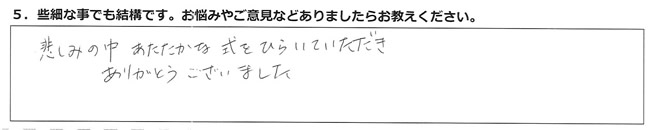 5．些細な事でも結構です。お悩みやご意見などありましたらお教えください。
悲しみの中 あたたかな 式を ひらいていただき
ありがとう ございました